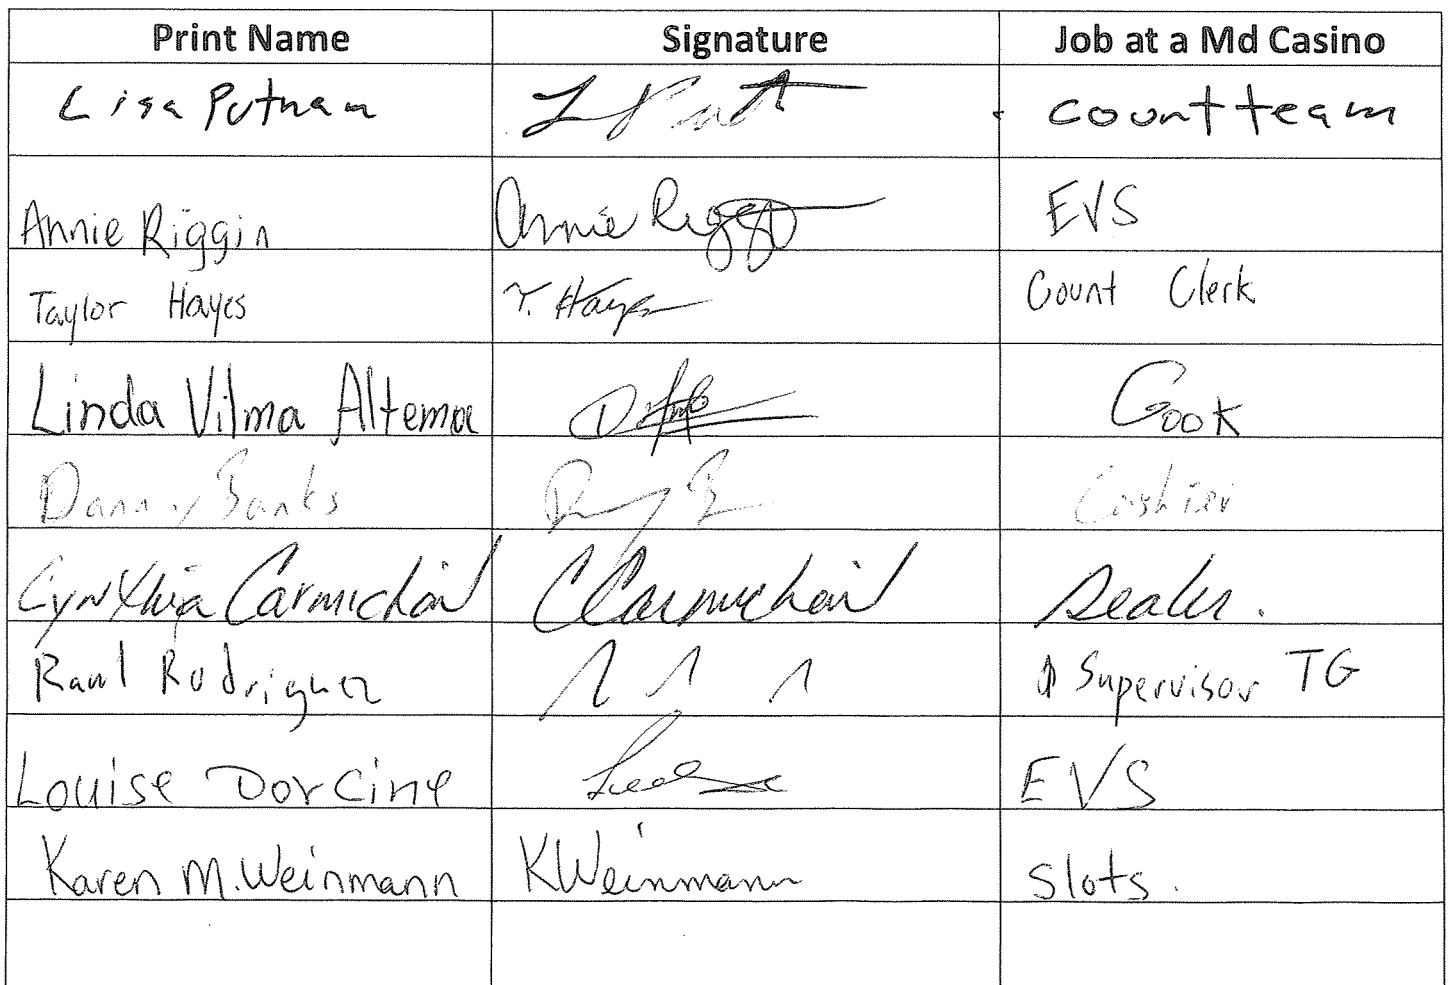 Print Name Signature Job at a Md Casino
Lisa Putnam count team
Annie Riggin Annie Riggin EVS
Taylor Hayes T. Hayes Count Clerk
Linda Vilma Altema Cook
Danny Banks Cashier
Cynthia Carmichail CCarmichail Dealer.
Raul Rodriguez Supervisor TG
Louise Dorcine EVS
Karen M. Weinmann KWeinmann Slots.